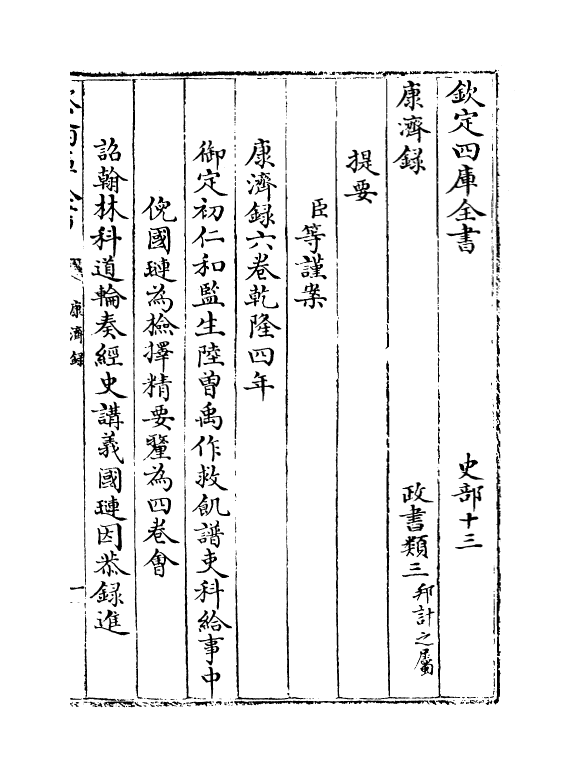 欽定四庫全書　史部十三
康濟録　政書類三邦計之屬
提要
臣等謹案
康濟録六卷乾隆四年
御定初仁和監生陸曽禹作救飢譜吏科給事中
倪國璉為檢擇精要釐為四卷會
詔翰林科道輪奏經史講義國璉因恭録進
康濟録
一